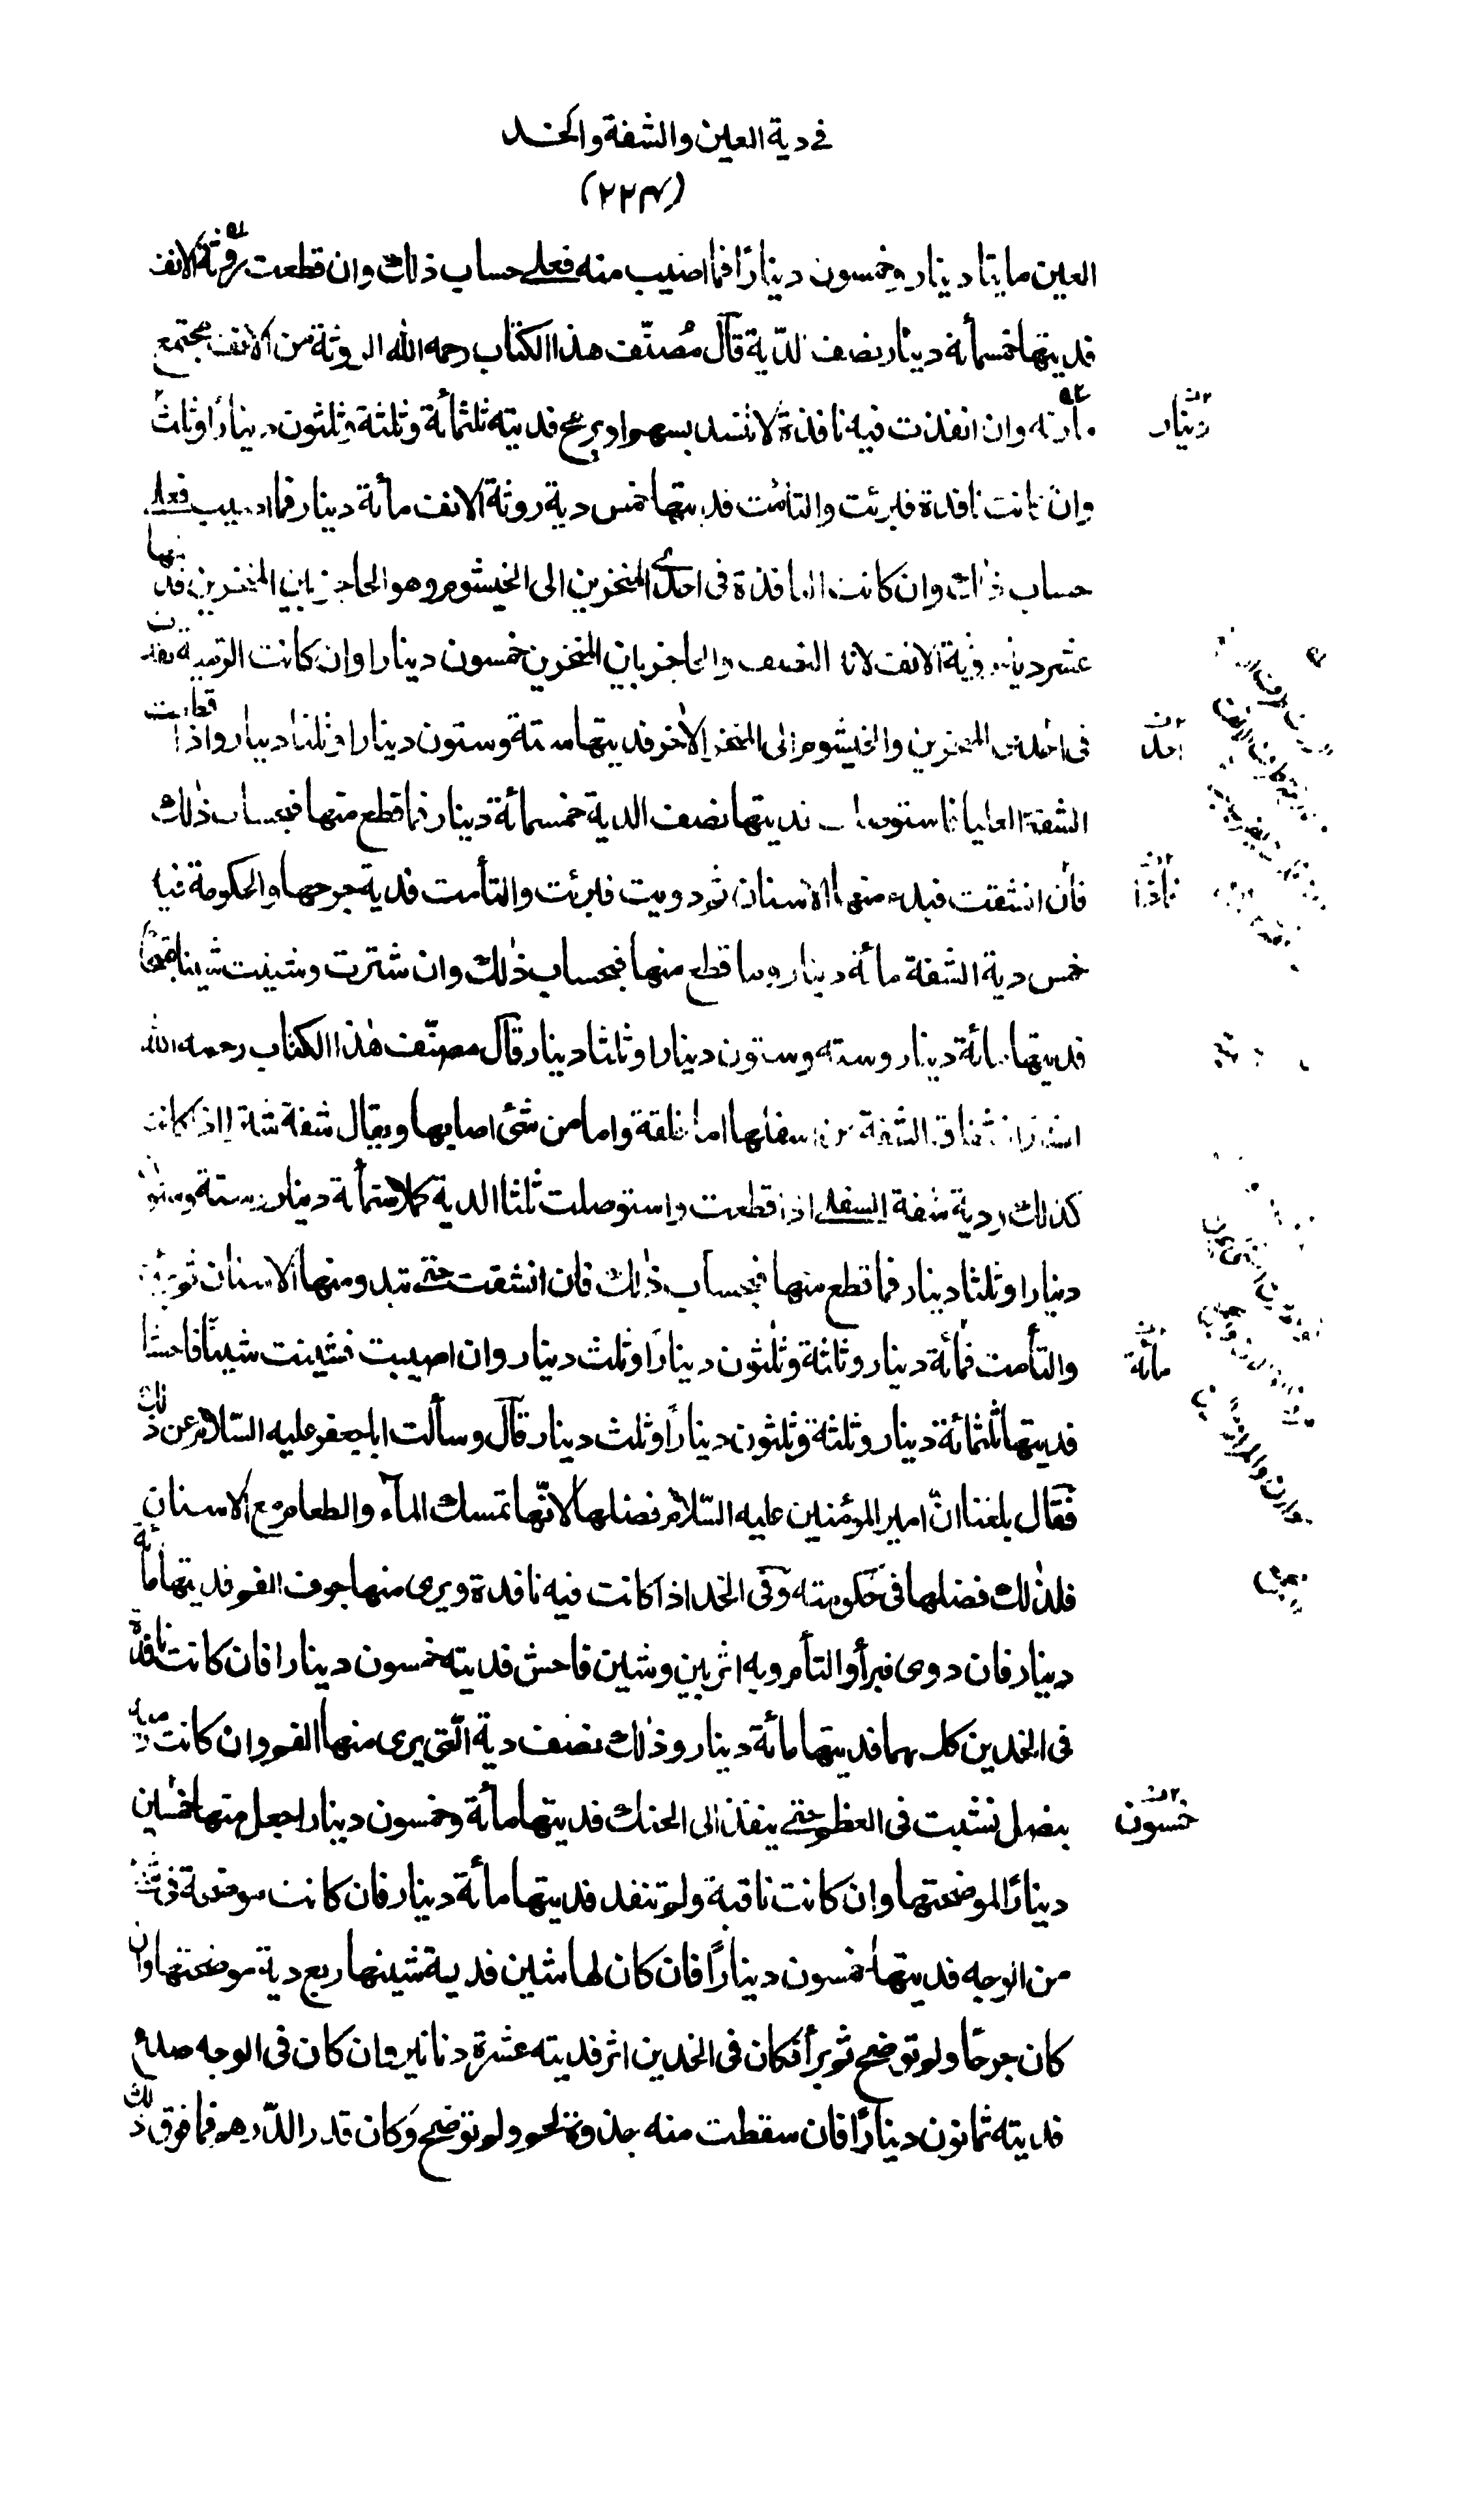 في دية العين والشفة والخد
(۲۲۴)
العين مايتا دينار وخمسون دينارًا فما اصيب منه فعلى حساب ذلك وان قطعت روثة الانف
فديتها خمسمأئة دينار نصف الدّية قال مُصنّف هذا الكتاب رحمه الله الروثة من الانف مجتمع
مارنه وان انفذت فيه نافذة لا تنسد بسهم او برمح فديته ثلثمأئة وثلثة وثلثون دينارًا وثلث
وان كانت نافدة فبرئت والتأمت فديتها خمس دية روثة الانف مائة دينار فما اصيب فعلى
حساب ذلك وان كانت النافذة فى احدى المنخرين الى الخيشوم وهو الحاجز بين المنخرين فديتها
عشر دية روثة الانف لانه النصف والحاجز بين المنخرين خمسون دينارا وان كانت الرمية نفذت
فى احدى المنخرين والخيشوم الى المنخر الاخر فديتها ستة وستون دينارا وثلثا دينار واذا قطعت
الشفة العليا فاستوصلت فديتها نصف الدية خمسمائة دينار فما قطع منها فبحساب ذلك
فأن انشقت فبدء منها الاسنان ثم دويت فبرئت والتأمت فدية جرحها والحكومة فيه
خمس دية الشفة مائة دينار وما قطع منها فبحساب ذلك وان شترت وشينت شينا قبيحًا
فديتها مائة دينار وسته وستون دينارا وثلثا دينار قال مصنّف هذا الكتاب رحمه الله
انشقاق الشفة من اسفلها اما خلقة واما من شئ اصابها ويقال شفة شتراء اذا كانت
كذلك ودية شفة السفلى اذا قطعت واستوصلت ثلثا الدية كملا ستمأئة دينار وستة وستون
دينارا وثلثا دينار فما قطع منها فبحساب ذلك فان انشقت حتى تبدو منها الاسنان ثم برئت
والتأمت فمائة دينار وثلثة وثلثون دينارًا وثلث دينار وان اصيبت فشينت شينًا فاحشا
فديتها ثلثمائة دينار وثلثة وثلثون دينارًا وثلث دينار قال وسألت ابا جعفر عليه السّلام عن ذلك
فقال بلغنا انّ امير المؤمنين عليه السّلام فضلها لانّها تمسك المآء والطعام مع الاسنان
فلذلك فضلها فى حكومته وفى الخد اذا كانت فيه نافدة ويرى منها جوف الفم فديتها مائة
دينار فان دوى فبرأ والتأم وبه اثر بين وشين فاحش فديته خمسون دينارا فان كانت نافدة
فى الخدين كليهما فديتها مائة دينار وذلك نصف دية الّتى يرى منها الفم وان كانت رمية
بنصل نشبت فى العظم حتى ينفذ الى الحنك فديتها مأئة وخمسون دينارا جعل منها خمسين
دينارًا لموضحتها وان كانت ناقبة ولم تنفد فديتها مائة دينار فان كانت موضحة فى شئ
من الوجه فديتها خمسون دينارًا فان كان لها شين فدية شينها ربع دية موضحتها وان
كان جرحًا ولم توضح ثم برأ فكان فى الخدين اثر فديته عشرة دنانير وان كان فى الوجه صدع
فديته ثمانون دينارًا فان سقطت منه جذوة لحم ولم توضح وكان قدر الدّرهم فما فوق ذلك
دينار
احد
فاذا
مائة
خمسون